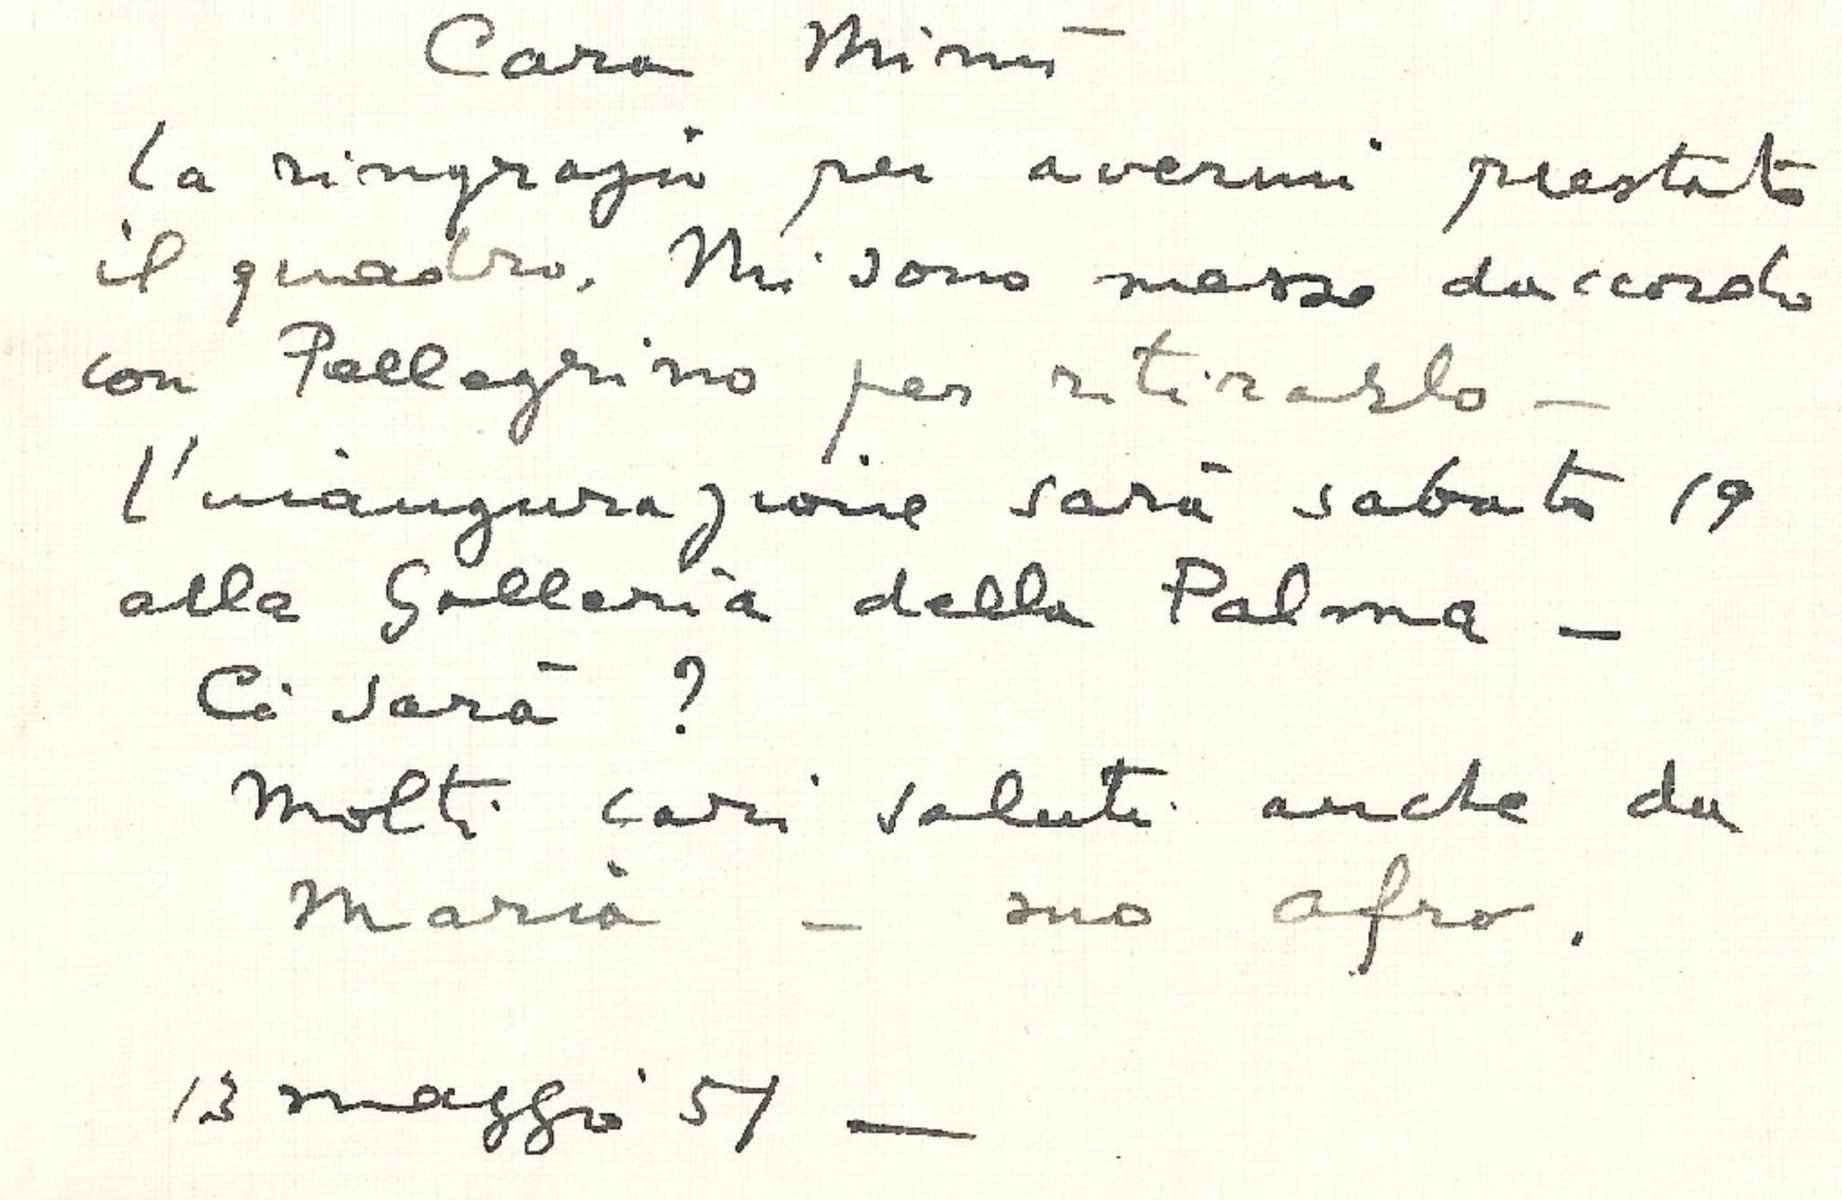 Cara Minù
la ringrazio per avermi prestato
il quadro. Mi sono messo daccordo
con Pellegrino per ritirarlo –
l'inaugurazione sarà sabato 19
alla Galleria della Palma –
Ci sarà ?
Molti cari saluti anche da
Maria – suo Afro.
13 maggio 51 —